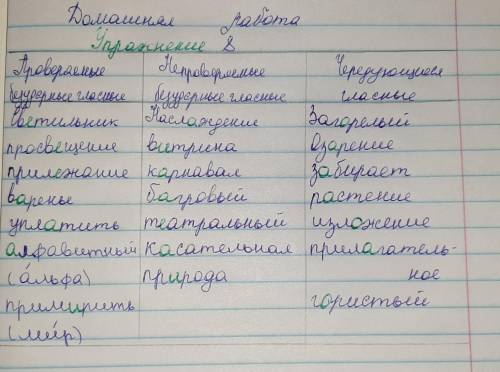 Домашная работа
Упражнение 8
Проверяемые Непроверяемые Чередующиеся
безударные гласные безударные гласные гласные
Светильник Наслаждение Загорелый
просвещение витрина Озарение
прилежание карнавал забирает
варенье багровый растение
уплатить театральный изложение
алфавитный касательная прилагатель-
(а́льфа) природа ное
примирить гористый
(ми́р)